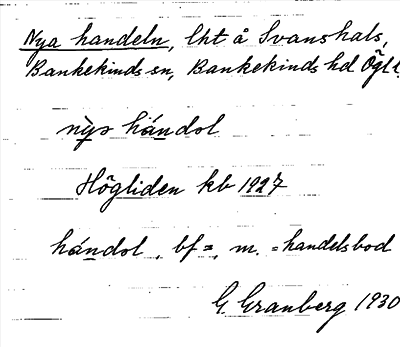 Nya handeln, lht å Svanshals,
Bankekinds sn, Bankekinds hd Ögl.
nỳo hándol
Högliden kb 1927
hándol, bf =, m. = handelsbod
G. Granberg 1930